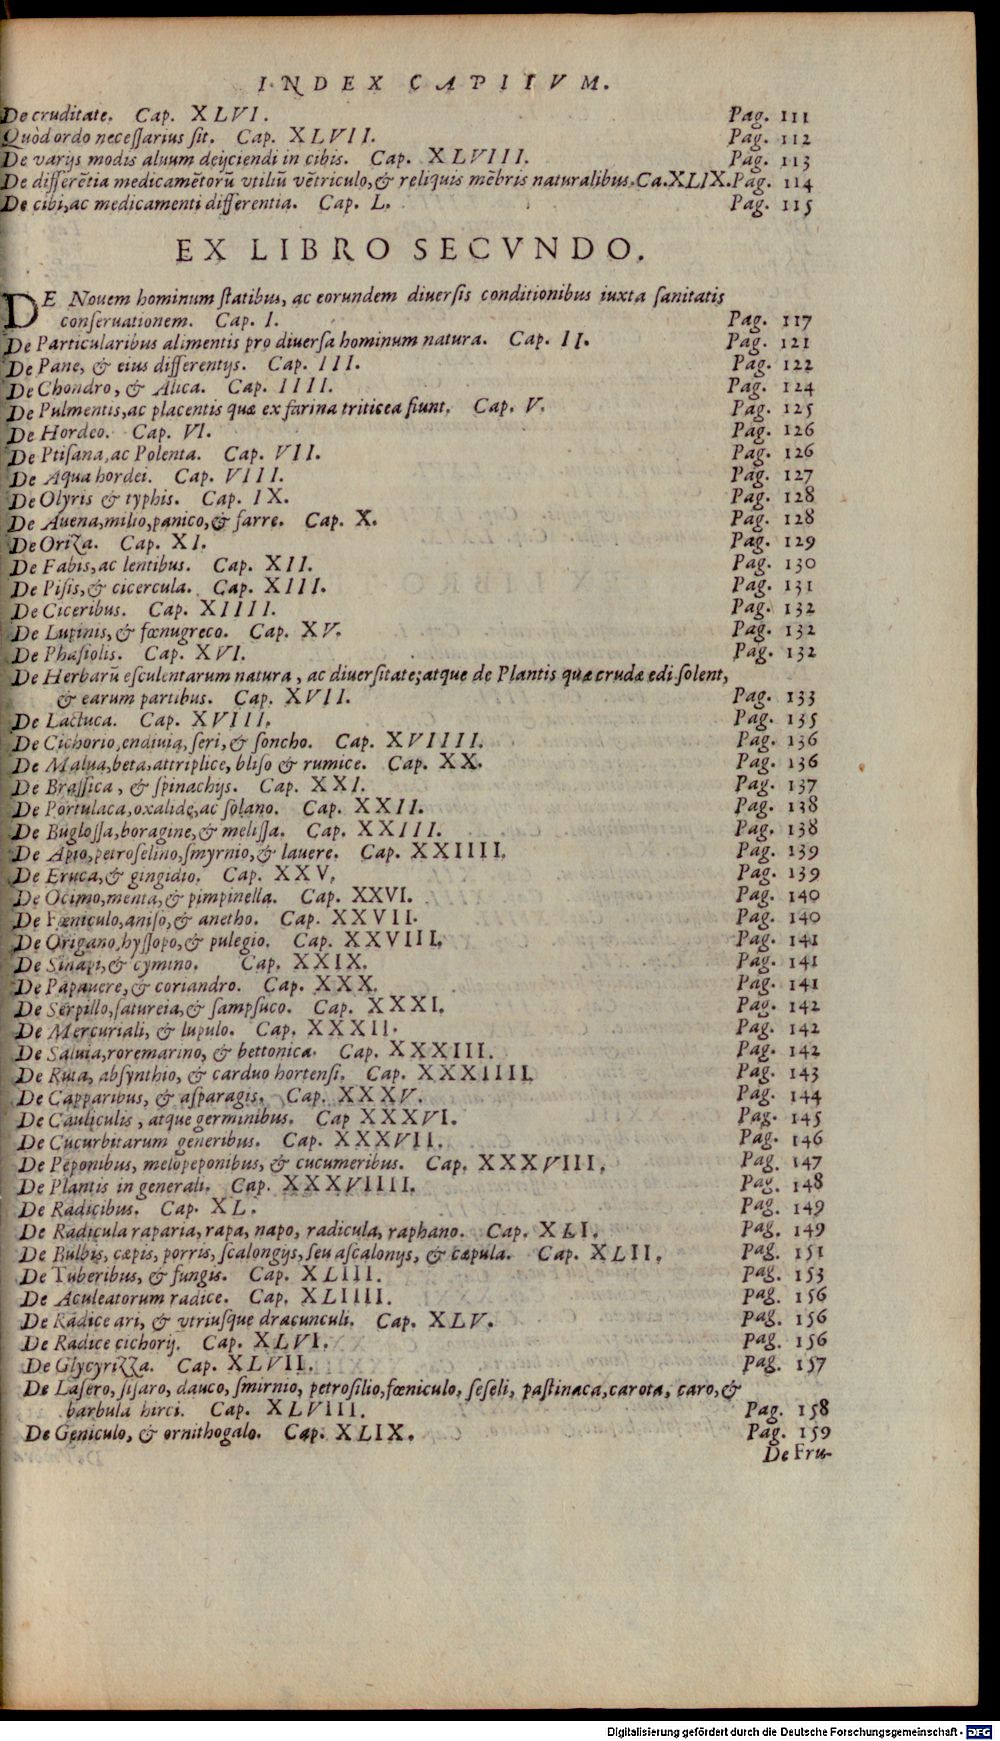 INDEX CAPITVM.
De cruditate. Cap. XLVI. Pag. 111
Quòd ordo necessarius sit. Cap. XLVII. Pag. 112
De varijs modis aluum deijciendi in cibis. Cap. XLVIII. Pag. 113
De differẽtia medicamẽtorũ vtiliũ vẽtriculo, & reliquis mẽbris naturalibus. Ca. XLIX. Pag. 114
De cibi, ac medicamenti differentia. Cap. L. Pag. 115
EX LIBRO SECVNDO.
DE Nouem hominum statibus, ac eorundem diuersis conditionibus iuxta sanitatis
conseruationem. Cap. I. Pag. 117
De Particularibus alimentis pro diuersa hominum natura. Cap. II. Pag. 121
De Pane, & eius differentijs. Cap. III. Pag. 122
De Chondro, & Alica. Cap. IIII. Pag. 124
De Pulmentis, ac placentis quæ ex farina triticea fiunt. Cap. V. Pag. 125
De Hordeo. Cap. VI. Pag. 126
De Ptisana, ac Polenta. Cap. VII. Pag. 126
De Aqua hordei. Cap. VIII. Pag. 127
De Olyris & typhis. Cap. IX. Pag. 128
De Auena, milio, panico, & farre. Cap. X. Pag. 128
De Oriza. Cap. XI. Pag. 129
De Fabis, ac lentibus. Cap. XII. Pag. 130
De Pisis, & cicercula. Cap. XIII. Pag. 131
De Ciceribus. Cap. XIIII. Pag. 132
De Lupinis, & fœnugreco. Cap. XV. Pag. 132
De Phasiolis. Cap. XVI. Pag. 132
De Herbarũ esculentarum natura, ac diuersitate; atque de Plantis quæ crudæ edi solent,
& earum partibus. Cap. XVII. Pag. 133
De Lactuca. Cap. XVIII. Pag. 135
De Cichorio, endiuia, seri, & soncho. Cap. XVIIII. Pag. 136
De Malua, beta, attriplice, bliso & rumice. Cap. XX. Pag. 136
De Brassica, & spinachijs. Cap. XXI. Pag. 137
De Portulaca, oxalide, ac solano. Cap. XXII. Pag. 138
De Buglossa, boragine, & melissa. Cap. XXIII. Pag. 138
De Apio, petroselino, smyrnio, & lauere. Cap. XXIIII. Pag. 139
De Eruca, & gingidio. Cap. XXV. Pag. 139
De Ocimo, menta, & pimpinella. Cap. XXVI. Pag. 140
De Fœniculo, aniso, & anetho. Cap. XXVII. Pag. 140
De Origano, hyssopo, & pulegio. Cap. XXVIII. Pag. 141
De Sinapi, & cymino. Cap. XXIX. Pag. 141
De Papauere, & coriandro. Cap. XXX. Pag. 141
De Serpillo, satureia, & sampsuco. Cap. XXXI. Pag. 142
De Mercuriali, & lupulo. Cap. XXXII. Pag. 142
De Saluia, roremarino, & bettonica. Cap. XXXIII. Pag. 142
De Ruta, absynthio, & carduo hortensi. Cap. XXXIIII. Pag. 143
De Capparibus, & asparagis. Cap. XXXV. Pag. 144
De Cauliculis, atque germinibus. Cap XXXVI. Pag. 145
De Cucurbitarum generibus. Cap. XXXVII. Pag. 146
De Peponibus, melopeponibus, & cucumeribus. Cap. XXXVIII. Pag. 147
De Plantis in generali. Cap. XXXVIIII. Pag. 148
De Radicibus. Cap. XL. Pag. 149
De Radicula raparia, rapa, napo, radicula, raphano. Cap. XLI. Pag. 149
De Bulbis, cæpis, porris, scalongijs, seu ascalonijs, & cæpula. Cap. XLII. Pag. 151
De Tuberibus, & fungis. Cap. XLIII. Pag. 153
De Aculeatorum radice. Cap. XLIIII. Pag. 156
De Radice ari, & vtriusque dracunculi. Cap. XLV. Pag. 156
De Radice cichorij. Cap. XLVI. Pag. 156
De Glycyrizza. Cap. XLVII. Pag. 157
De Lasero, sisaro, dauco, smirnio, petrosilio, fœniculo, seseli, pastinaca, carota, caro, &
barbula hirci. Cap. XLVIII. Pag. 158
De Geniculo, & ornithogalo. Cap. XLIX. Pag. 159
De Fru-
Digitalisierung gefördert durch die Deutsche Forschungsgemeinschaft - DFG